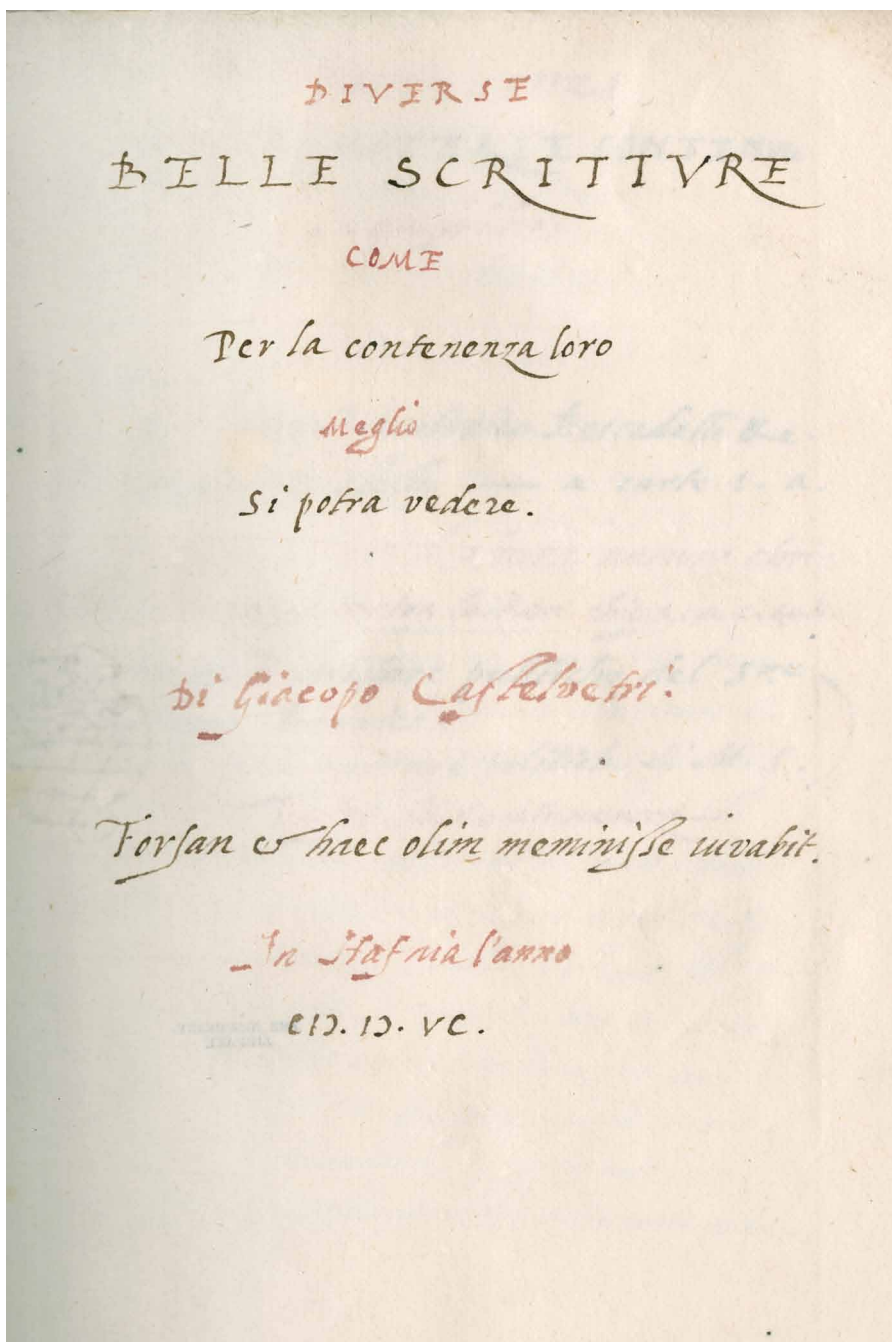 DIVERSE
BELLE SCRITTVRE
COME
Per la contenenza loro
Meglio
Si potra vedere.
Di Giacopo Castelvetri.
Forsan & haec olim meminisse iuvabit.
In Hafnia l'anno
CIↃ. IↃ. VC.